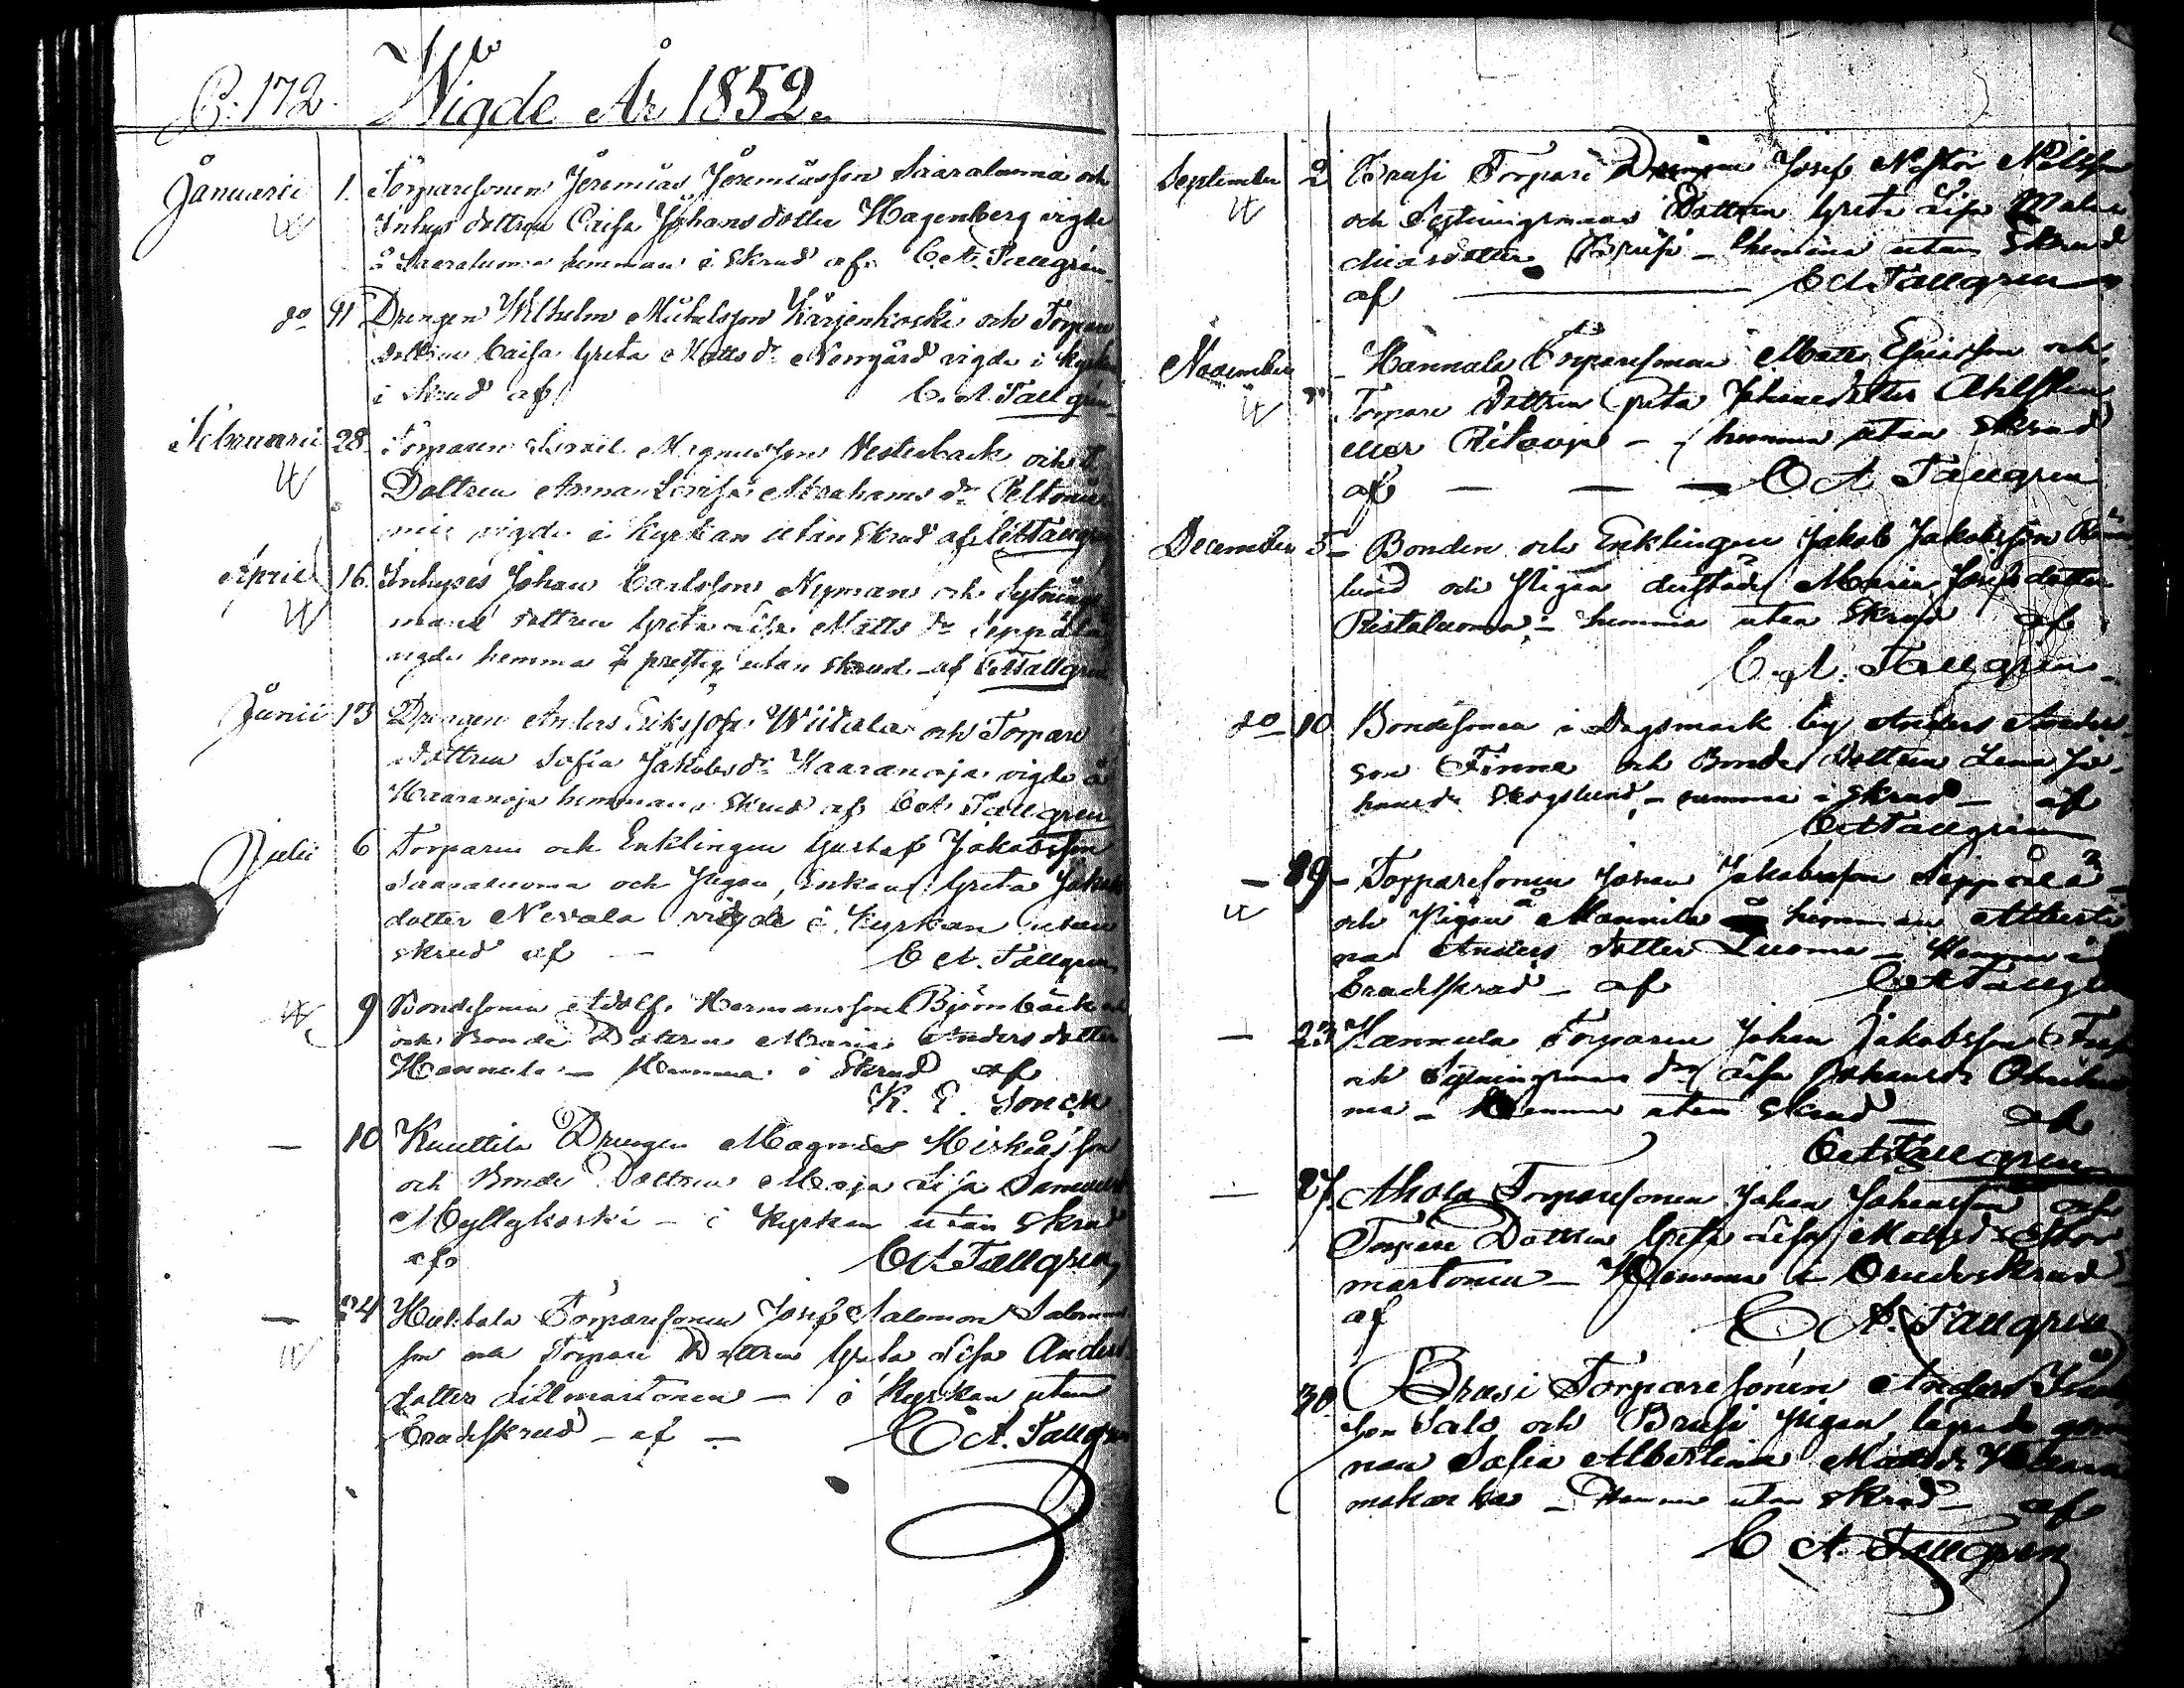 P. 172. Wigde År 1852.
Januarii 1. Torparesonen Jeremias Jeremiasson Saaraluoma och
Inhyses dottren Caisa Johansdotter Hagenberg vigde
å Saaraluoma hemman i skrud af C. A. Tallgren
do Drengen Wilhelm Mickelsson Kärjenkoski och Torpare
dottren Caisa Greta Matts dr Norrgård vigde i kyrkan
i skrud af C. A. Tallgren
Februarii 28. Torparen Israel Magnusson Westerback och
Dottren Anna Lovisa Abrahams dr
vigde i kyrkan utan skrud af CATallgren
April 16. Inhyses Johan Carlsson Nyman och Sytnings
mans dottren Greta Lisa Matts dr Seppälä
vigde hemma å prestg utan skrud af CATallgren
Junii 13 Drengen Anders Eriksson Wiitala och Torpare
dottren Sofia Jakobs dr Kaaranoja vigde å
Kaaranoja hemman i skrud af C A Tallgren
Julii 6 Torparen och Enklingen Gustaf Jakobsson
Saaraluoma och Pigan, Enkan Greta Jakobs
dotter Nevala vigde i Kyrkan utan
skrud af — C A. Tallgren
9 Bondesonen Adolf Hermansson Björnbäck
och Bonde Dottren Maria Anders dotter
Hannula — Hemma i Skrud af
K. E. Sonck
— 10 Knuttila Drengen Magnus Hiskiasson
och Bonde Dottren Maja Lisa Samuelsd
Myllykoski — i Kyrkan utan skrud
af C A. Tallgren
— 24 Huhtala Torparesonen Josef Salomon Salomons
son och Torpare Dottren Greta Lisa Anders
dotter Lillmartonen — i Kyrkan utan
Brudskrud — af — C A. Tallgren
September 2 Brusi Torpare Josef Nestor Nilsson
och Sytningsmans Dottren Greta Lisa Mala
chiasdotter Brusi — hemma utan Skrud
af — C A Tallgren
November Hannula Torparesonen Matts Ericsson och
Torpare Dottren Greta Johansdotter Ahlsten
eller Ritaoja — hemma utan skrud
af — — — C A Tallgren
December 5 — Bonden och Enklingen Jakob Jakobsson
lund och Pigan derstädes Maria Josefsdotter
Ristaluoma — hemma utan skrud af
C. A. Tallgren
do 10 Bondesonen i Dagsmark by Anders Anders
son Finne och Bonde Dottren Lena Jo-
hansdr Skogslund — hemma i skrud — af
C A Tallgren
— Torparesonen Johan Jakobsson Seppälä
och Pigan å Mannila hemman Alberti
na Anders dotter Luoma — Hemma i
Brudskrud — af C A Tallgren
— 23 Hannula Torparen Johan Jakobsson
och Sytningsmans dr Lisa Johansdr
ma — Hemma utan skrud — af
C A Tallgren
— 27. Ahola Torparesonen Johan Johansson och
Torpare Dottren Greta Lisa Mattsd Stor
martonen — Hemma i Brudskrud
af C A. Tallgren
30 Brusi Torparesonen Anders
son Salo och Brusi Pigan
nan Sofia Albertina Mattsdr
— Hemma utan skrud — af
C A. Tallgren